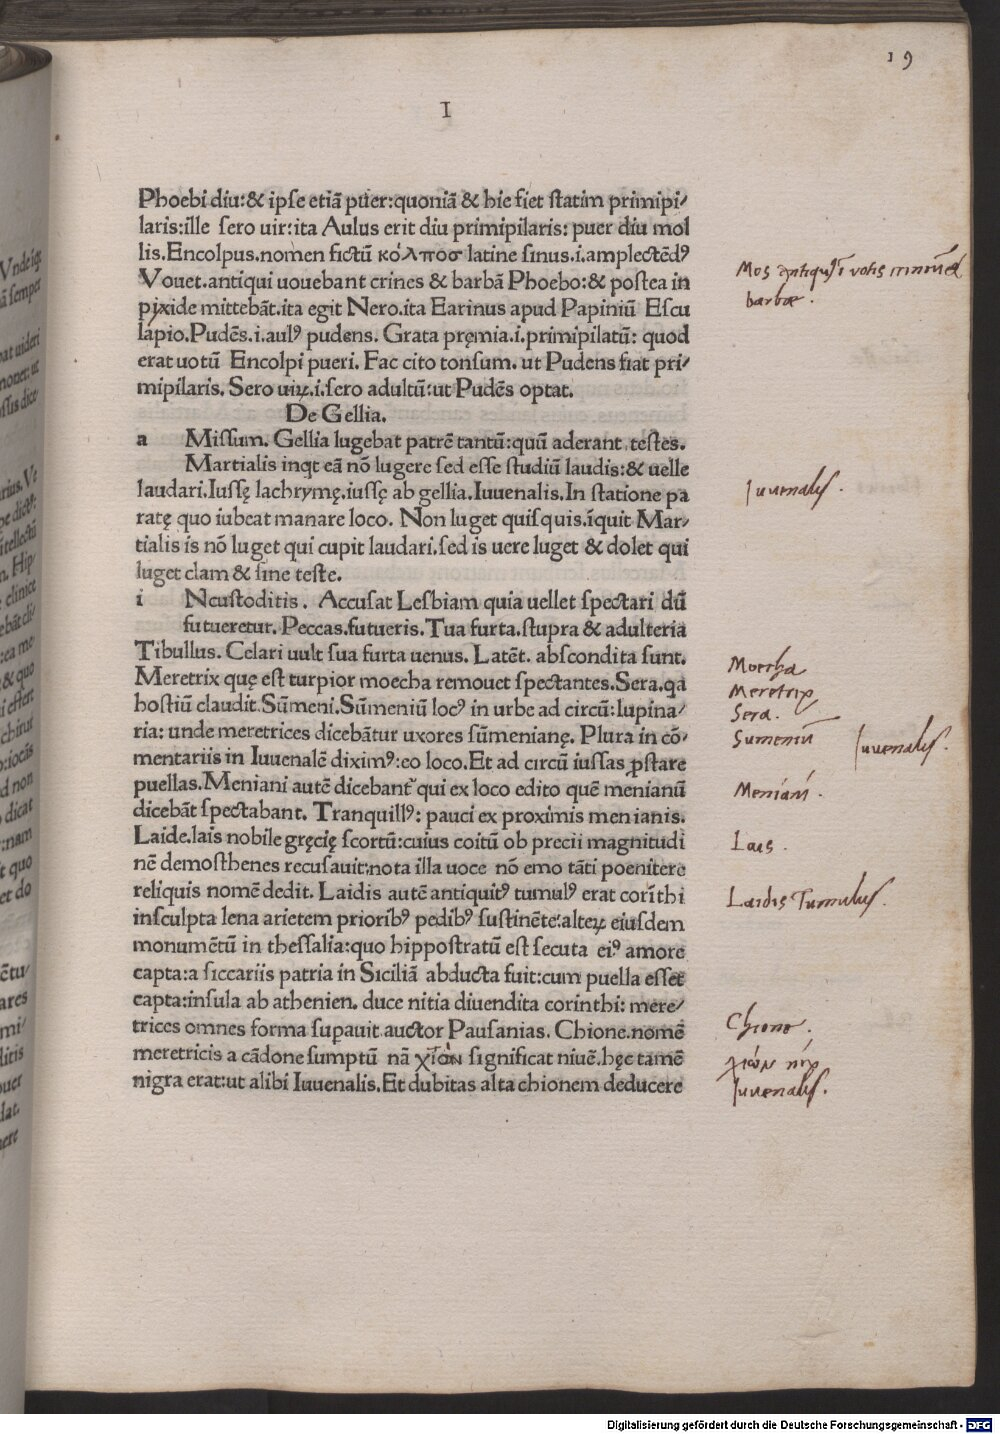 19
I
Phoebi diu:& ipſe etiã puer:quoniã & hic fiet ſtatim primipi⸗
laris:ille ſero uir:ita Aulus erit diu primipilaris: puer diu mol
lis.Encolpus.nomen fictũ κόλποσ latine ſinus.i.amplectẽdꝰ
Vouet.antiqui uouebant crines & barbã Phoebo:& poſtea in
pixide mittebãt.ita egit Nero.ita Earinus apud Papiniũ Eſcu
lapio.Pudẽs.i.aulꝰ pudens. Grata pręmia.i.primipilatũ: quod
erat uotũ Encolpi pueri. Fac cito tonſum. ut Pudens fiat pri⸗
mipilaris. Sero uiꝝ.i.ſero adultũ:ut Pudẽs optat.
De Gellia.
a Miſſum. Gellia lugebat patrẽ tantũ:quũ aderant teſtes.
Martialis inqt eã nõ lugere ſed eſſe ſtudiũ laudis:& uelle
laudari.Iuſſę lachrymę.iuſſę ab gellia.Iuuenalis.In ſtatione pa
ratę quo iubeat manare loco. Non luget quiſquis.ĩquit Mar⸗
tialis is nõ luget qui cupit laudari.ſed is uere luget & dolet qui
luget clam & ſine teſte.
i Ncuſtoditis. Accuſat Lesbiam quia uellet ſpectari dũ
futueretur. Peccas.futueris.Tua furta.ſtupra & adulteria
Tibullus. Celari uult ſua furta uenus. Latẽt. abſcondita ſunt.
Meretrix quę eſt turpior moecha remouet ſpectantes.Sera.qa
hoſtiũ claudit.Sũmeni.Sũmeniũ locꝰ in urbe ad circũ:lupina⸗
ria: unde meretrices dicebãtur uxores ſũmenianę. Plura in cõ⸗
mentariis in Iuuenalẽ diximꝰ:eo loco.Et ad circũ iuſſas ꝓſtare
puellas.Meniani autẽ dicebant᷑ qui ex loco edito quẽ menianũ
dicebãt ſpectabant. Tranquillꝰ: pauci ex proximis menianis.
Laide.lais nobile gręcię ſcortũ:cuius coitũ ob precii magnitudi
nẽ demoſthenes recuſauit:nota illa uoce nõ emo tãti poenitere
reliquis nomẽ dedit. Laidis autẽ antiquitꝰ tumulꝰ erat corĩthi
inſculpta lena arietem prioribꝰ pedibꝰ ſuſtinẽte:alteꝝ eiuſdem
monumẽtũ in theſſalia:quo hippoſtratũ eſt ſecuta eiꝰ amore
capta:a ſiccariis patria in Siciliã abducta fuit:cum puella eſſet
capta:inſula ab athenien. duce nitia diuendita corinthi: mere⸗
trices omnes forma ſupauit.auctor Pauſanias. Chione.nomẽ
meretricis a cãdone ſumptũ nã χιὼν ſignificat niuẽ.hęc tamẽ
nigra erat:ut alibi Iuuenalis.Et dubitas alta chionem deducere
Mos antiquꝰ ĩ votis
barbæ.
Iuuenalis.
Moecha
Meretrix
Sera.
Sumeniũ
Iuuenalis.
Meniani.
Lais.
Laidis Tumulus.
Chione.
χιών nix
Iuuenalis.
Digitalisierung gefördert durch die Deutsche Forschungsgemeinschaft - DFG